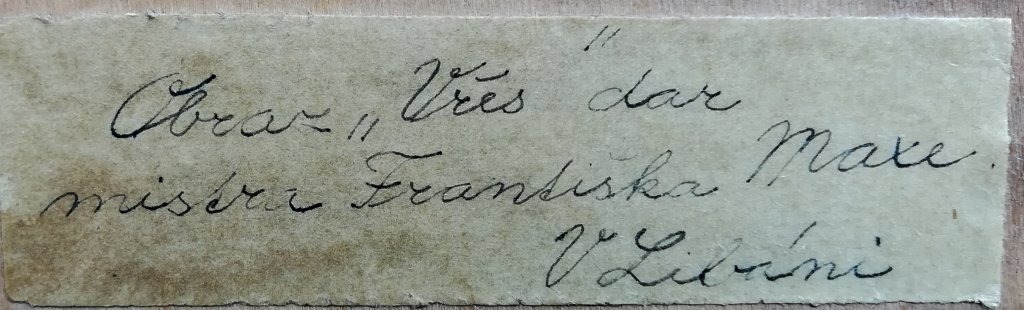 Obraz „Vřes" dar
mistra Františka Maxe.
V Libáni